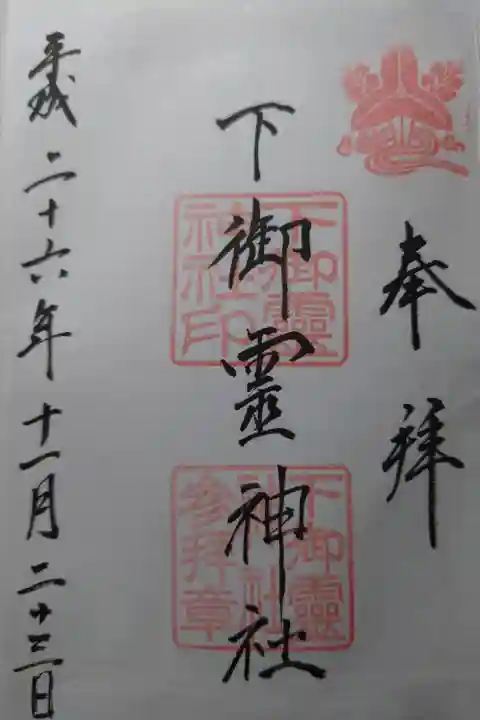 奉拝
下御靈神社
下御靈神社印
下御靈神社参拝章
平成二十六年十一月二十三日